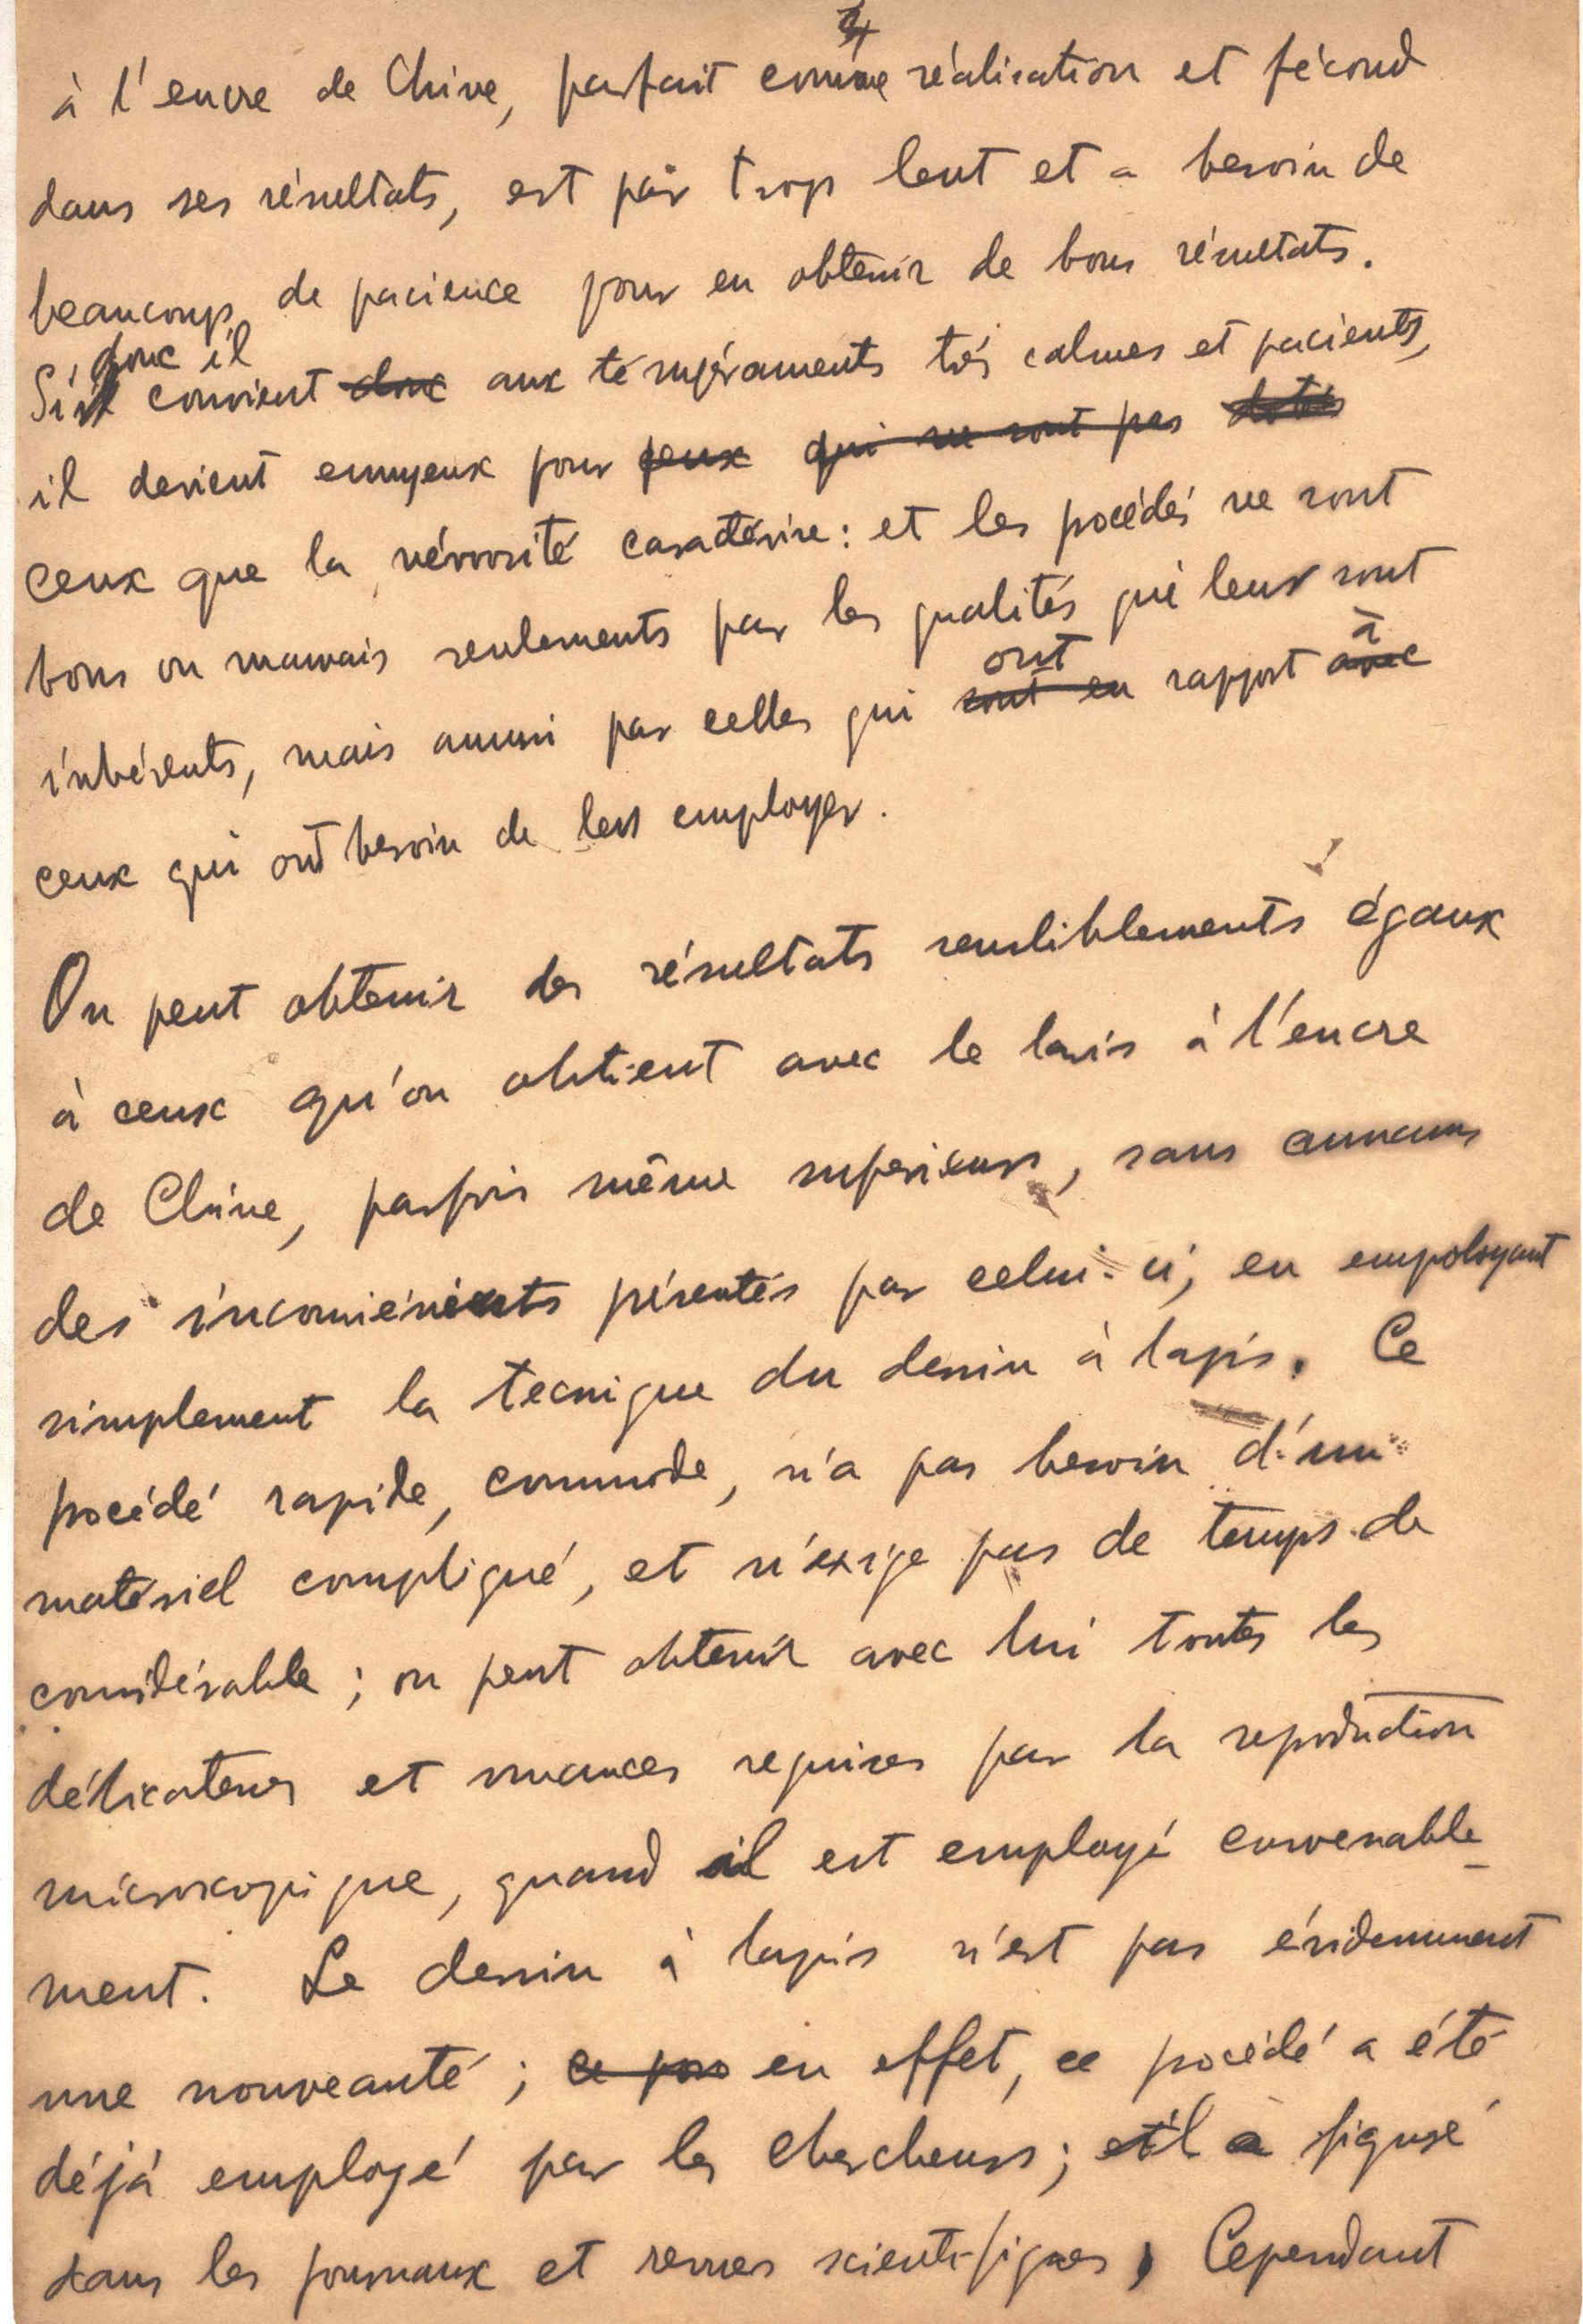 à l'encre de Chine, parfait comme réalisation et fécond
dans ses résultats, est par trop lent et a besoin de
beaucoup de pacience pour en obtenir de bons résultats.
donc il
Si convient donc aux témpéraments trés calmes et pacients,
il devient ennuyeux pour ceux qui ne sont pas dotés
ceux que la nérvosité caractérise: et les procédés ne sont
bons ou mauvais seulements par les qualités qui leur sont
ont à
inhérents, mais aussi par celles qui sont en rapport avec
ceux qui ont besoin de les employer.
On peut obtenir des résultats sensiblements égaux
à ceux qu'on obtient avec le lavis à l'encre
de Chine, parfois même superieurs, sans aucuns
des inconvénients présentés par celui-ci, en empoloyant
simplement la tecnique du dessin à lapis. Ce
procédé rapide, commode, n'a pas besoin d'un
matériel compliqué, et n'exige pas de temps de
considérable; on peut obtenir avec lui toutes les
délicateses et nuances requises par la reproduction
microscopique, quand il est employé convenable-
ment. Le dessin à lapis n'est pas évidemment
une nouveauté; ce pro en effet, ce procédé a été
déjà employé par les chercheurs; il a figuré
dans les journaux et revues scientifiques, Cependant